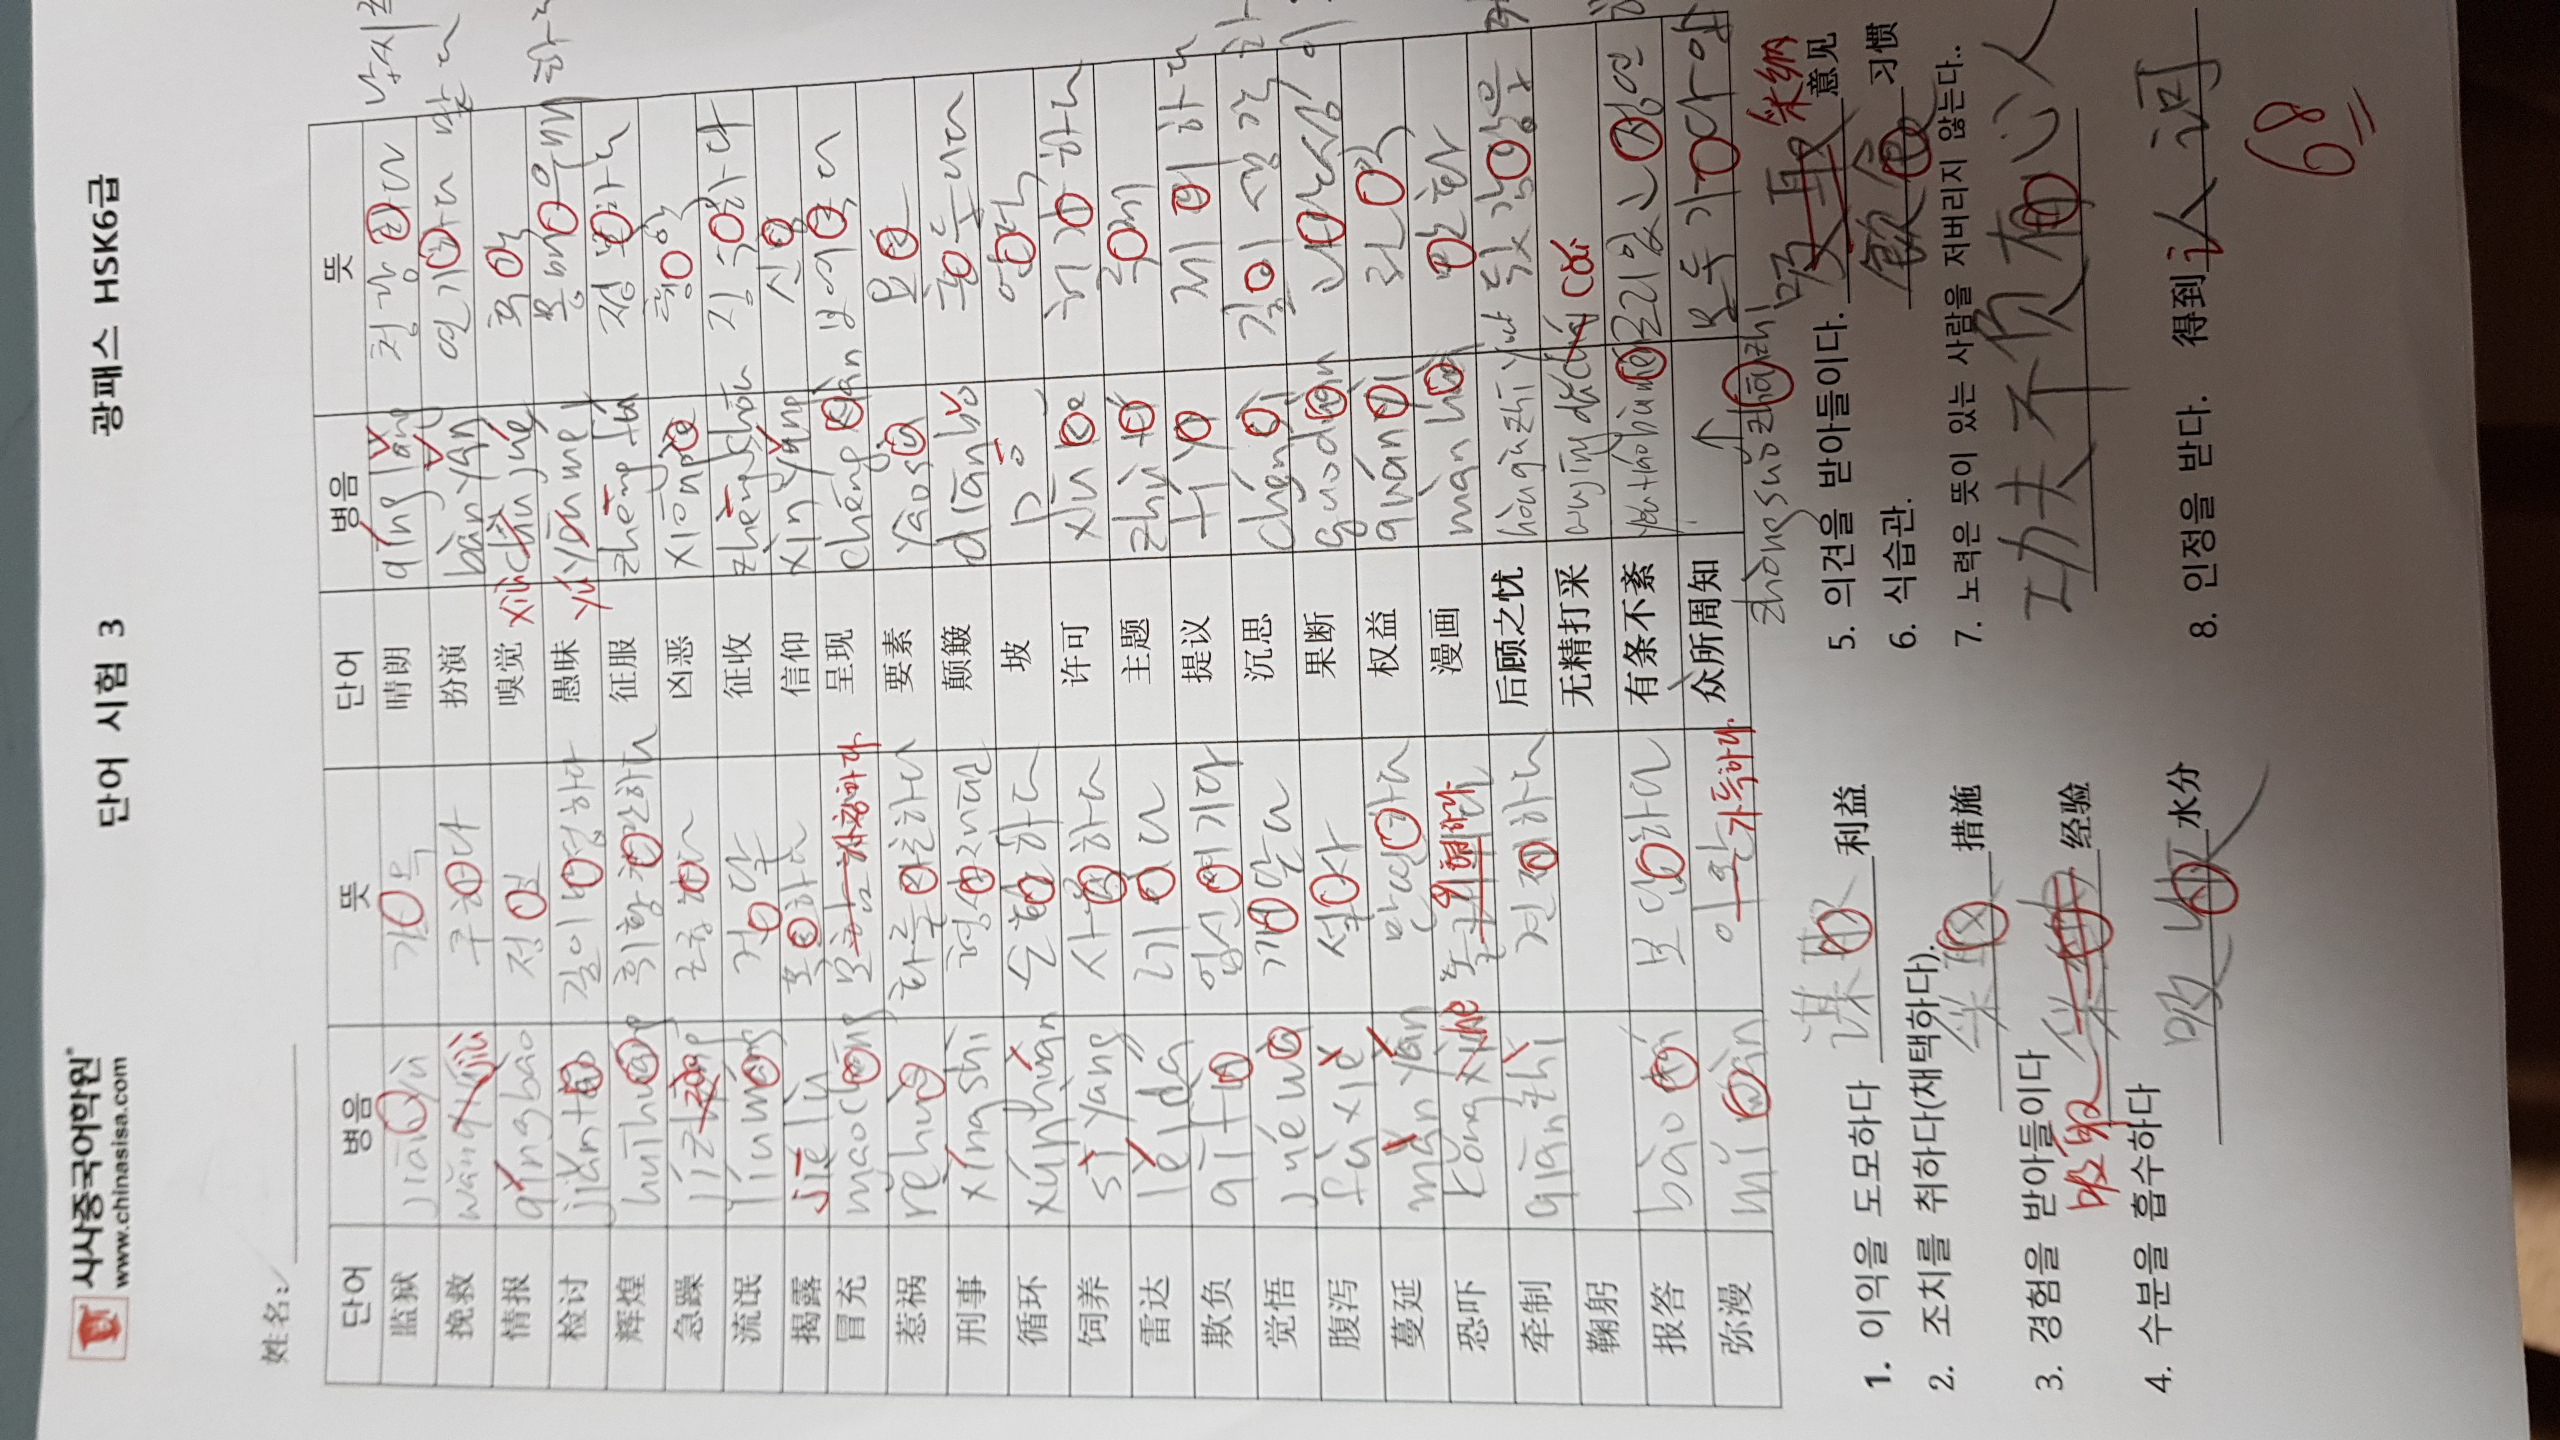 시사중국어학원
www.chinasisa.com
단어 시험 3
광패스 HSK6급
姓名:
단어 병음 뜻 단어 병음 뜻
监狱 jiānyù 감옥 晴朗 qínglǎng
挽救 jiù 구하다 扮演 bànyǎn 연기하다
情报 qíngbào 정보 嗅觉 xiù jué 후각
检讨 jiǎntǎo 깊이 반성하다 愚昧 yú mèi
辉煌 huīhuáng 휘황찬란하다 征服 zhēngfú 정복하다
急躁 jízào 조급하다 凶恶 xiōng'è 흉악
流氓 liúmáng 건달 征收 zhēngshōu 징수하다
揭露 jiēlù 폭로하다 信仰 xìnyǎng 신앙
冒充 màochōng 가장하다 呈现 chéngxiàn 보여주다
惹祸 rěhuò 화를 자초하다 要素 yàosù 요소
刑事 xíngshì 형사재판 颠簸 diānbǒ 흔들리다
循环 xúnhuán 순환하다 坡 pō 언덕
饲养 sìyǎng 사육하다 许可 xǔkě 허가하다
雷达 léidá 레이다 主题 zhǔtí 주제
欺负 qīfù 업신여기다 提议 tíyì 제의하다
觉悟 juéwù 깨닫다 沉思 chén 깊이 생각
腹泻 fùxiè 설사 果断 guǒduàn
蔓延 mànyán 만연하다 权益 quányì 권익
恐吓 kǒng hè 위협하다 漫画 mànhuà 만화
牵制 qiānzhì 견제하다 后顾之忧 hòugùzhīyōu 뒷걱정
鞠躬 无精打采 wújīngdǎ cǎi
报答 bàodá 보답하다 有条不紊 yǒutiáobùwěn 조리있고 정연
弥漫 mímàn 가득하다 众所周知 모두가 다 앎
zhòngsuǒzhōuzhī
1. 이익을 도모하다 谋取 利益
2. 조치를 취하다(채택하다). 采取 措施
3. 경험을 받아들이다 吸取 经验
4. 수분을 흡수하다 吸收 水分
5. 의견을 받아들이다. 吸取 采纳 意见
6. 식습관. 飮食 习惯
7. 노력은 뜻이 있는 사람을 저버리지 않는다..
功夫不负有心人
8. 인정을 받다. 得到 认词
68